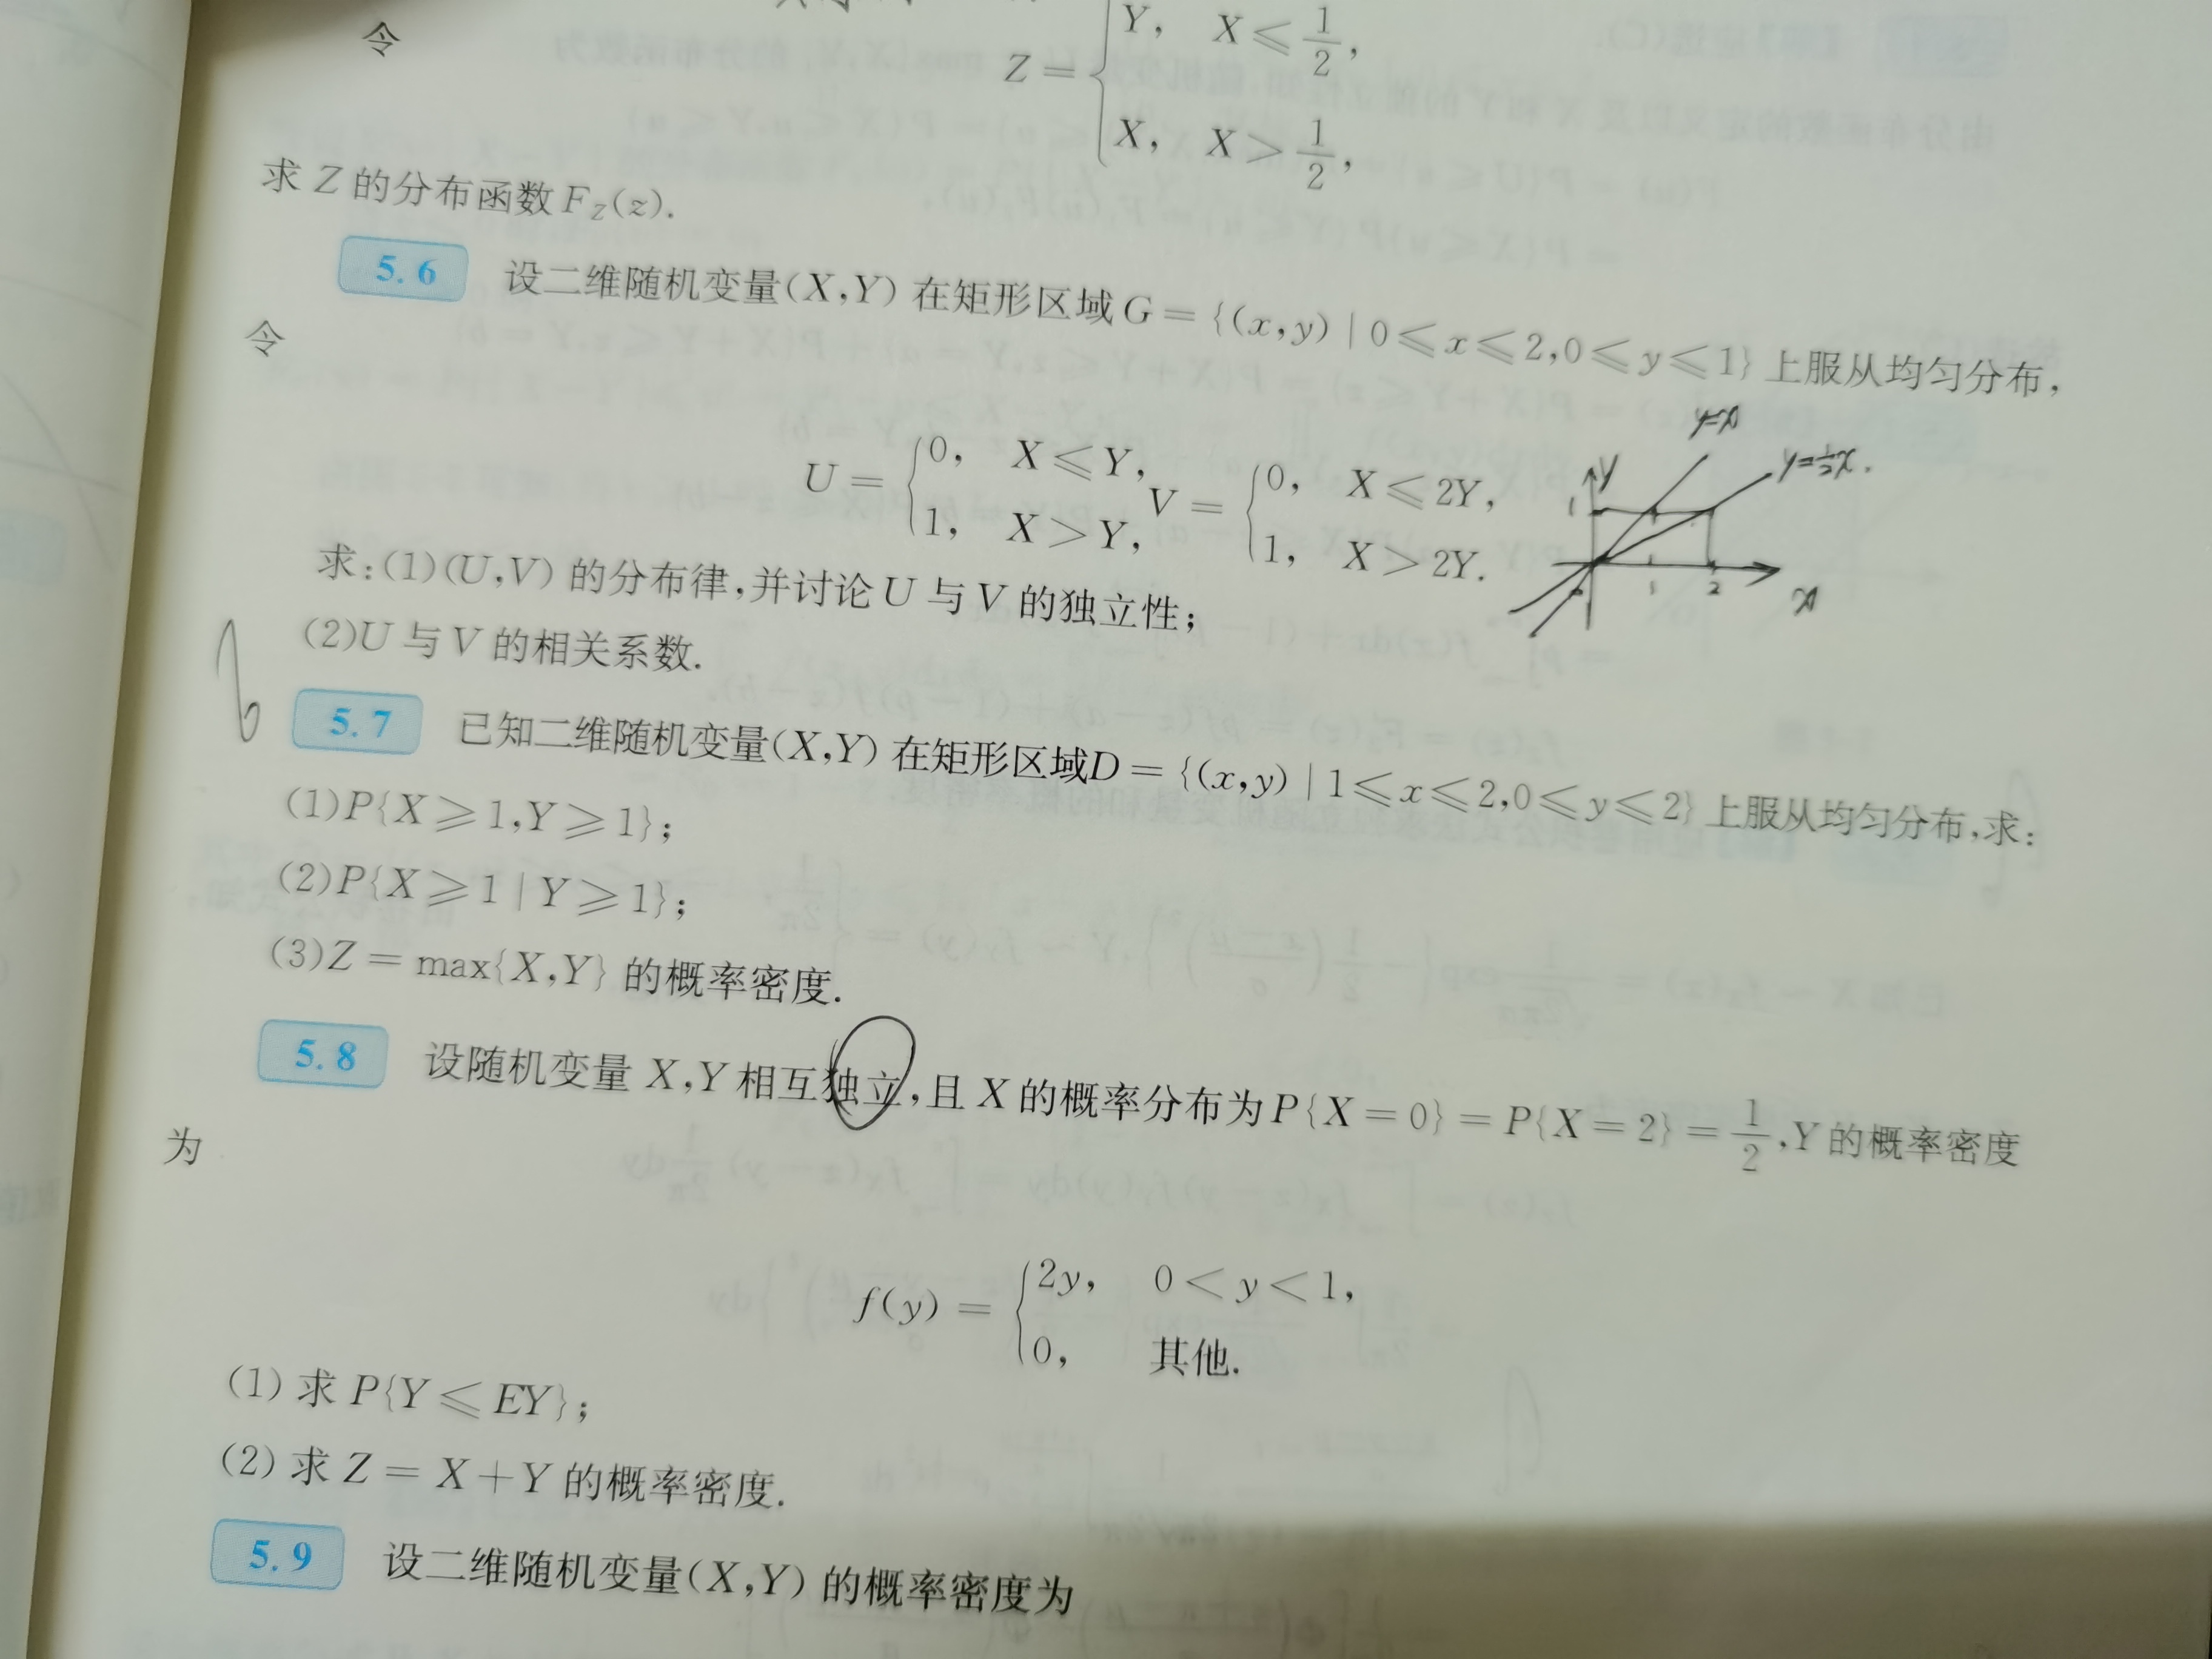 令
Z = { Y, X ⩽ 1/2,
X, X > 1/2,
求 Z 的分布函数 F_Z(z).
5.6 设二维随机变量(X,Y) 在矩形区域 G = {(x,y) | 0 ⩽ x ⩽ 2,0 ⩽ y ⩽ 1} 上服从均匀分布,
令
y=x
U = { 0, X ⩽ Y, V = { 0, X ⩽ 2Y, y y=1/2x.
1, X > Y, 1, X > 2Y. 1
1 2 x
求:(1)(U,V) 的分布律,并讨论 U 与 V 的独立性;
(2)U 与 V 的相关系数.
5.7 已知二维随机变量(X,Y) 在矩形区域D = {(x,y) | 1 ⩽ x ⩽ 2,0 ⩽ y ⩽ 2} 上服从均匀分布,求:
(1)P{X ⩾ 1,Y ⩾ 1};
(2)P{X ⩾ 1 | Y ⩾ 1};
(3)Z = max{X,Y} 的概率密度.
5.8 设随机变量 X,Y 相互独立,且 X 的概率分布为 P{X = 0} = P{X = 2} = 1/2,Y 的概率密度
为
f(y) = { 2y, 0 < y < 1,
0, 其他.
(1) 求 P{Y ⩽ EY};
(2) 求 Z = X + Y 的概率密度.
5.9 设二维随机变量(X,Y) 的概率密度为